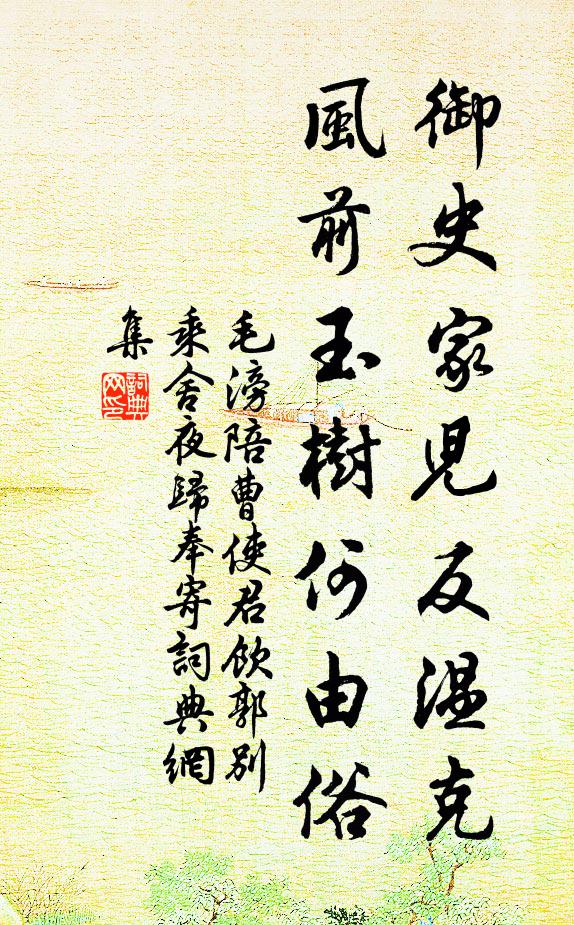 御史家児反温克
風前玉樹何由俗
毛滂陪曹使君飲郭别
乘舍夜歸奉寄詞典網
集
詞典
网印